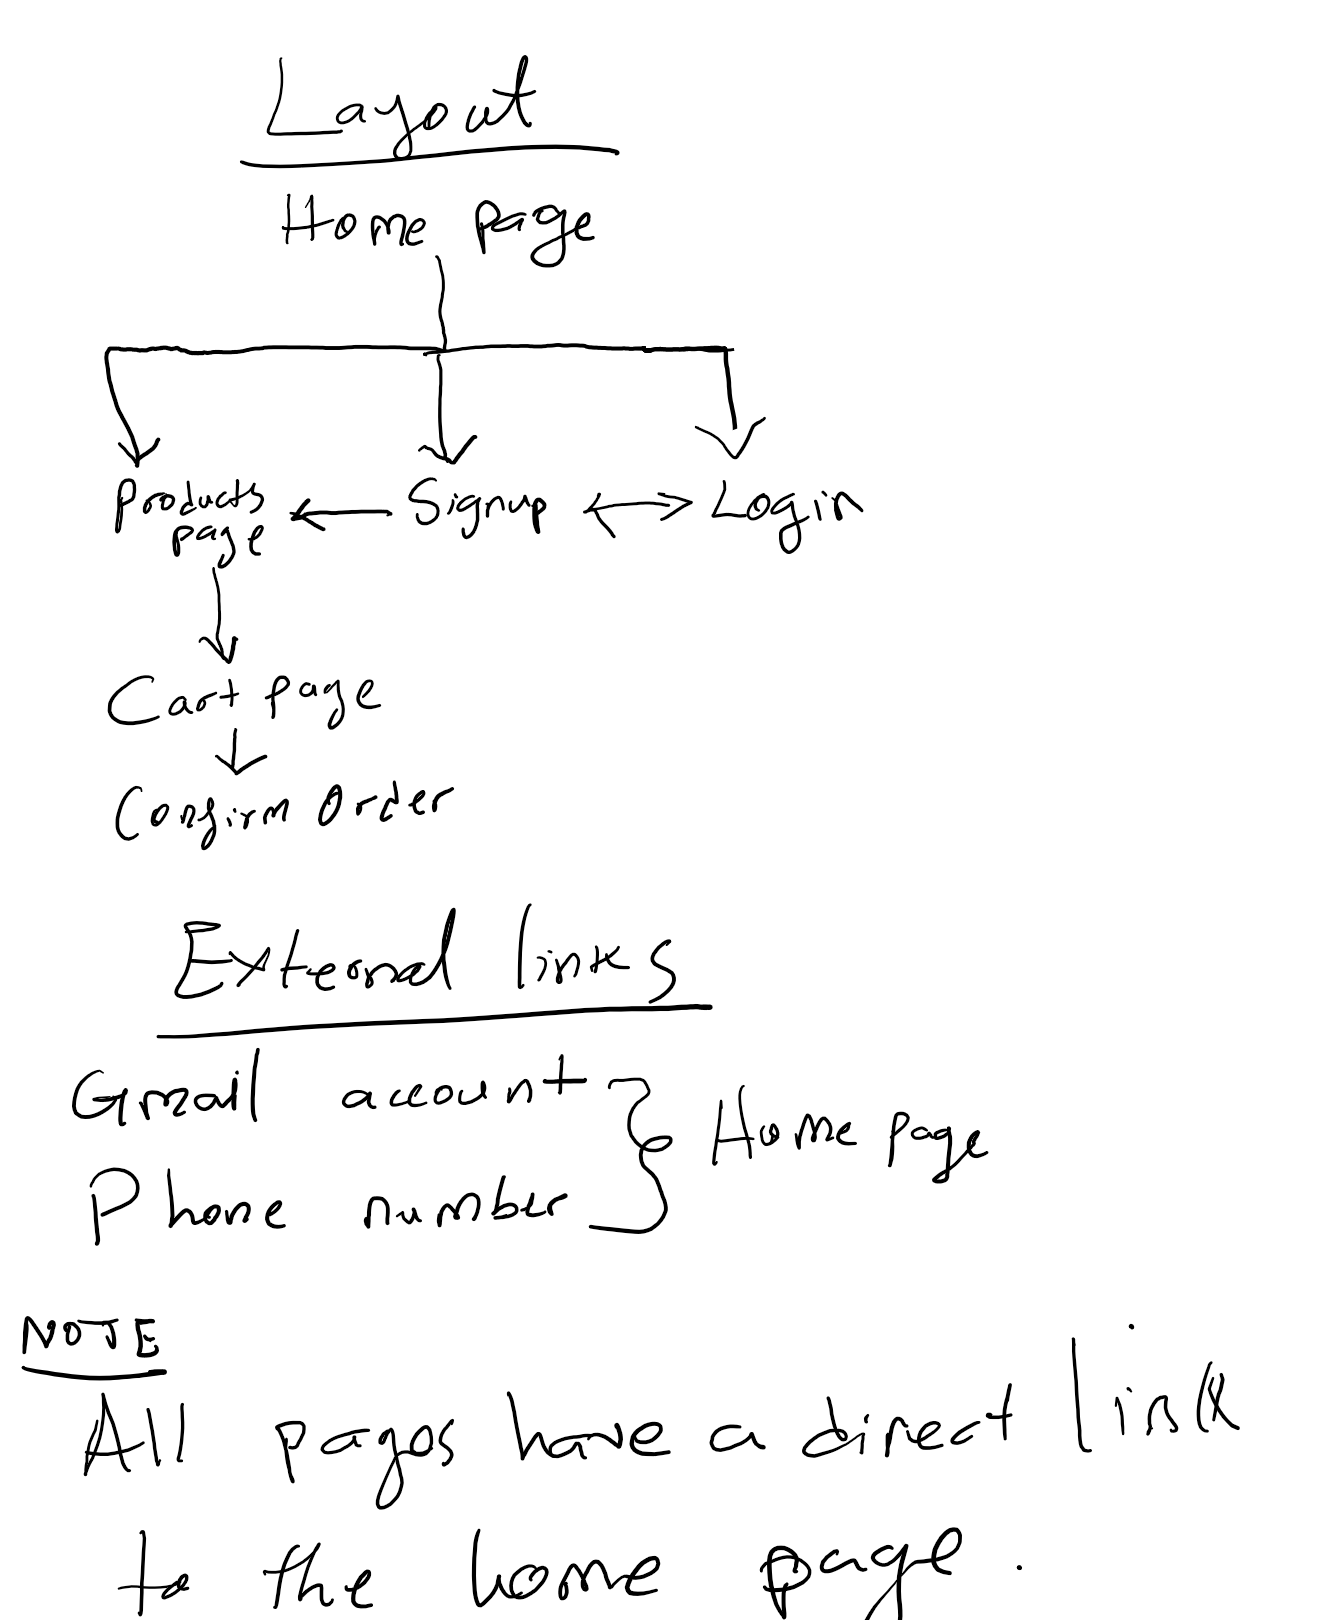 Layout
Home page
Products page
Signup
Login
Cart page
Confirm Order
External links
Gmail account
Phone number
Home page
NOTE
All pages have a direct link
to the home page.